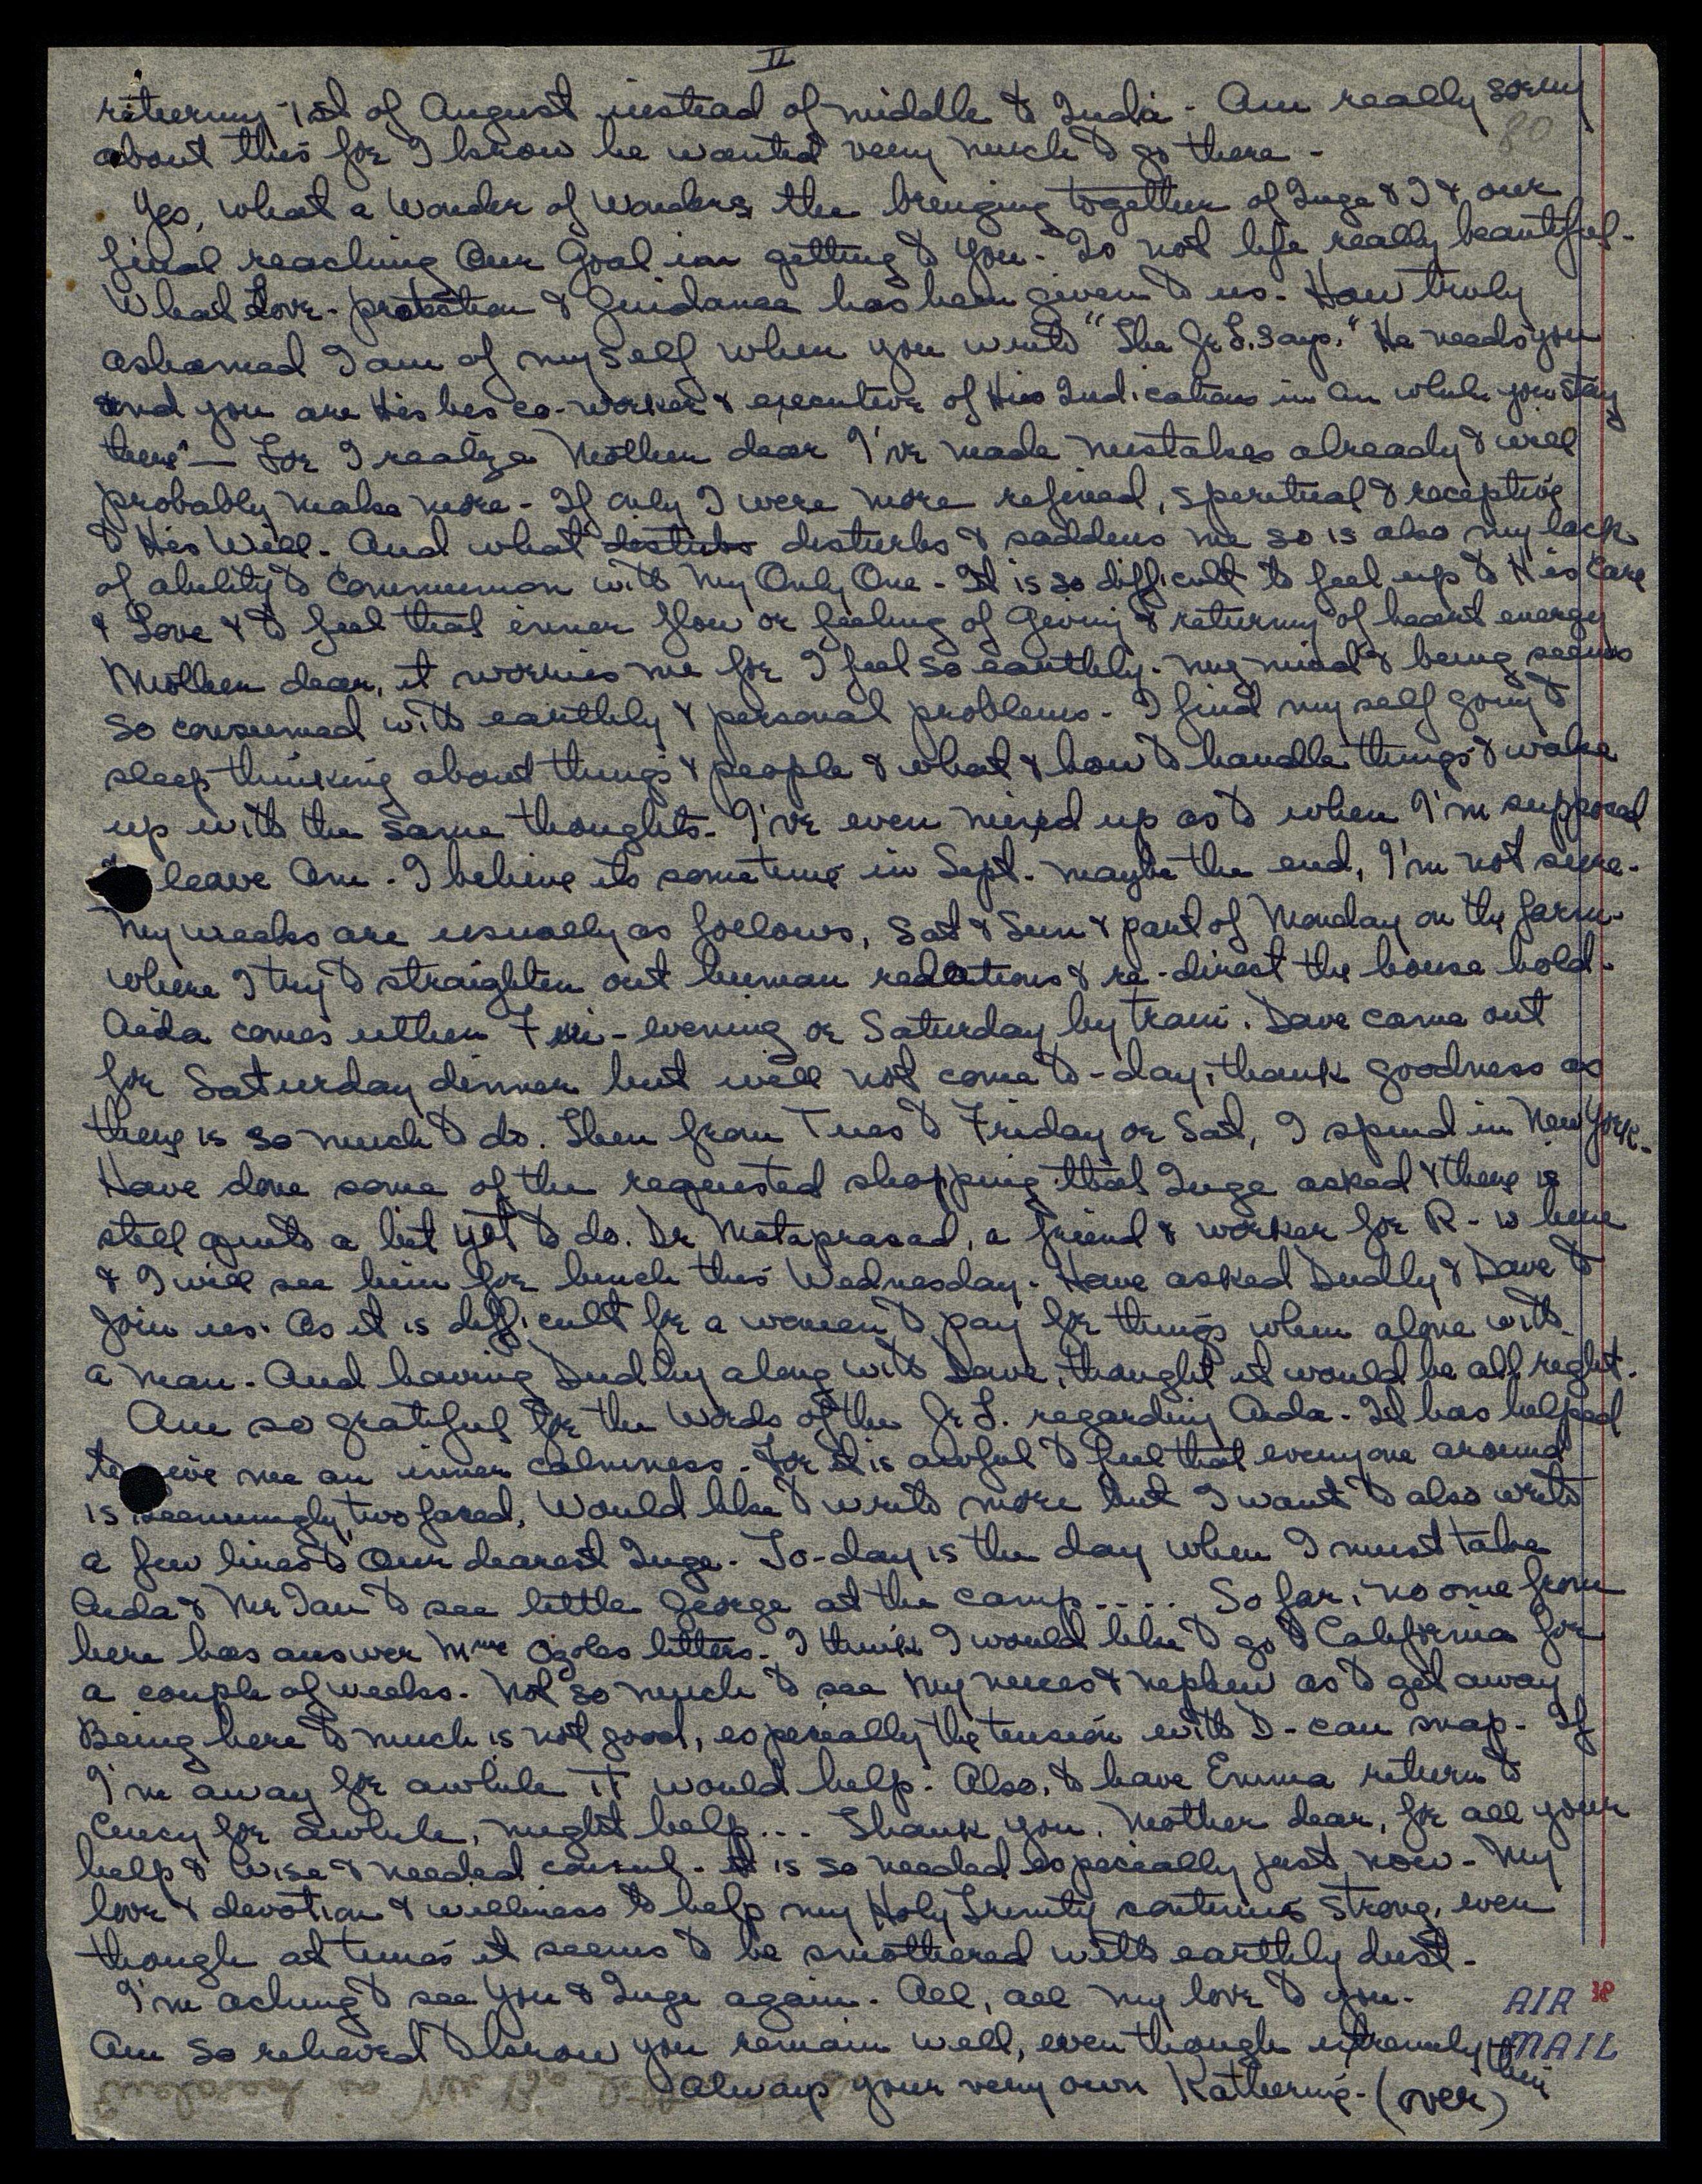 II
returning 1st of August instead of middle to India - Am really sorry
80
about this for I know he wanted very much to go there -
Yes, what a Wonder of Wonders, the bringing together of Inge & I & our
final reaching Our Goal in getting to you - Is not life really beautiful -
What Love - protection & Guidance has been given to us - How truly
ashamed I am of myself when you write "The Gr L. says," He needs you
and you are His bes co-worker & executive of His Indications in Am while you stay
there" — For I realize Mother dear I've made mistakes already & will
probably make more - If only I were more refined, speretual & receptive
to His Will - And what distubs disturbs & saddens me so is also my lack
of ability to Communion with My Only One - It is so difficult to feel up to His Care
& Love & to feel that inner flow or feeling of Giving & returning of heart energy
Mother dear, it worries me for I feel so earthly - my mind & being seems
so consumed with earthly & personal problems - I find myself going to
sleep thinking about things & people & what & how to handle things & wake
up with the same thoughts - I've even mixed up as to when I'm supposed
leave Am - I believe its sometime in Sept - maybe the end, I'm not sure -
My weeks are usually as follows, Sat & Sun & part of Monday on the farm -
where I try to straighten out human realations & re-direct the house hold -
Aida comes either Fri - evening or Saturday by train. Dave came out
for Saturday dinner but will not come to-day, thank goodness as
there is so much to do. Then from Tues to Friday or Sat, I spend in New York -
Have done some of the requested shopping that Inge asked & there is
still quite a bit yet to do. Dr Mataprasad, a friend & worker for R - is here
& I will see him for lunch this Wednesday - Have asked Dudly & Dave to
join us. As it is difficult for a woman to pay for things when alone with
a man - And having Dudley along with Dave, thought it would be all right.
Am so grateful for the Words of the Gr L. regarding Aida - It has helped
to give me an inner calmness - For it is awful to feel that everyone around
is seemingly two faced, Would like to write more but I want to also write
a few lines to Our dearest Inge - To-day is the day when I must take
Aida & Mr Tau to see little George at the camp ..... So far, no one from
here has answer Mme Ozols letters - I think I would like to go to California for
a couple of weeks - Not so much to see my neices & nephew as to get away
Being here to much is not good, especially the tension with D - can snap - If
I'm away for awhile it would help - Also, to have Emma return to
Cincy for awhile, might help ... Thank you, Mother dear, for all your
help & wise & needed counsel - It is so needed especially just now - My
love & devotion & williness to help my Holy Trinity continues strong, even
though at times it seems to be smothered with earthly dust -
I'm aching to see you & Inge again - All, all my love to you -
AIR
MAIL
Am so relieved to know you remain well, even though extremely thin
Always your very own Katherine - (over)